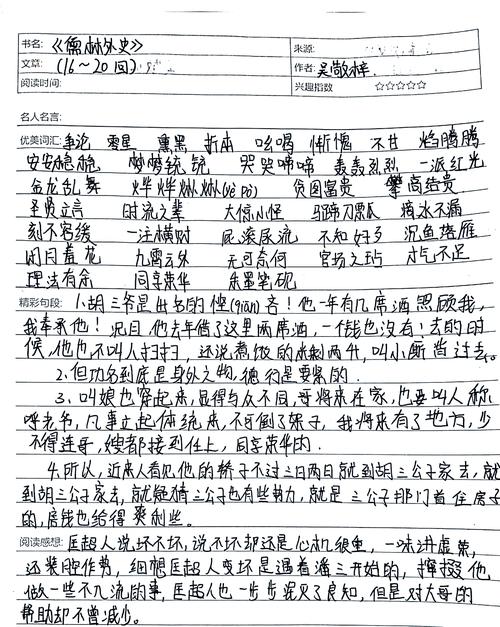 书名: 《儒林外史》 来源:
文章: (16~20回) 作者: 吴敬梓
阅读时间: 兴趣指数 ☆☆☆☆☆
名人名言:
优美词汇: 争论 零星 熏黑 折本 吆喝 惭愧 不甘 焰腾腾
安安稳稳 哭哭啼啼 轰轰烈烈 一派红光
金龙乱舞 烨烨烞烞(yè pò) 贪图富贵 攀高结贵
圣贤立言 时流之辈 大惊小怪 滴水不漏
刻不容缓 一注横财 屁滚尿流 不知好歹 沉鱼落雁
闭月羞花 九霄云外 无可奈何 官场之巧 才气不足
理法有余 同享荣华
精彩句段: 1.胡三爷是出名的悭(qiān)吝!他一年有几席酒照顾我,
我奉承他!况且他去年借了这里两席酒,一个钱也没有!去的时
候,他也不叫人扫扫,还说煮饭的米剩两升,叫小厮背过去。
2.但功名到底是身外之物,德行是要紧的.
3.叫娘也穿起来,显得与众不同,哥将来在家,也要叫人称
呼老爷,凡事立起体统来,不可倒了架子,我将来有了地方,少
不得连哥,嫂都接到任上,同享荣华的.
4.所以,近来人看见他的轿子不过三日两日就到胡三公子家去,就
到胡三公子家去,就疑猜三公子也有些势力,就是三公子那门首住房子
的,房钱也给得爽利些。
阅读感想: 匡超人说坏不坏,说不坏却还是心机很重,一味讲虚荣,
还装腔作势,细想匡超人变坏是遇着潘三开始的,撺掇他
做一些不入流的事,匡超人也一步步泯灭了良知,但是对大哥的
帮助却不曾减少。